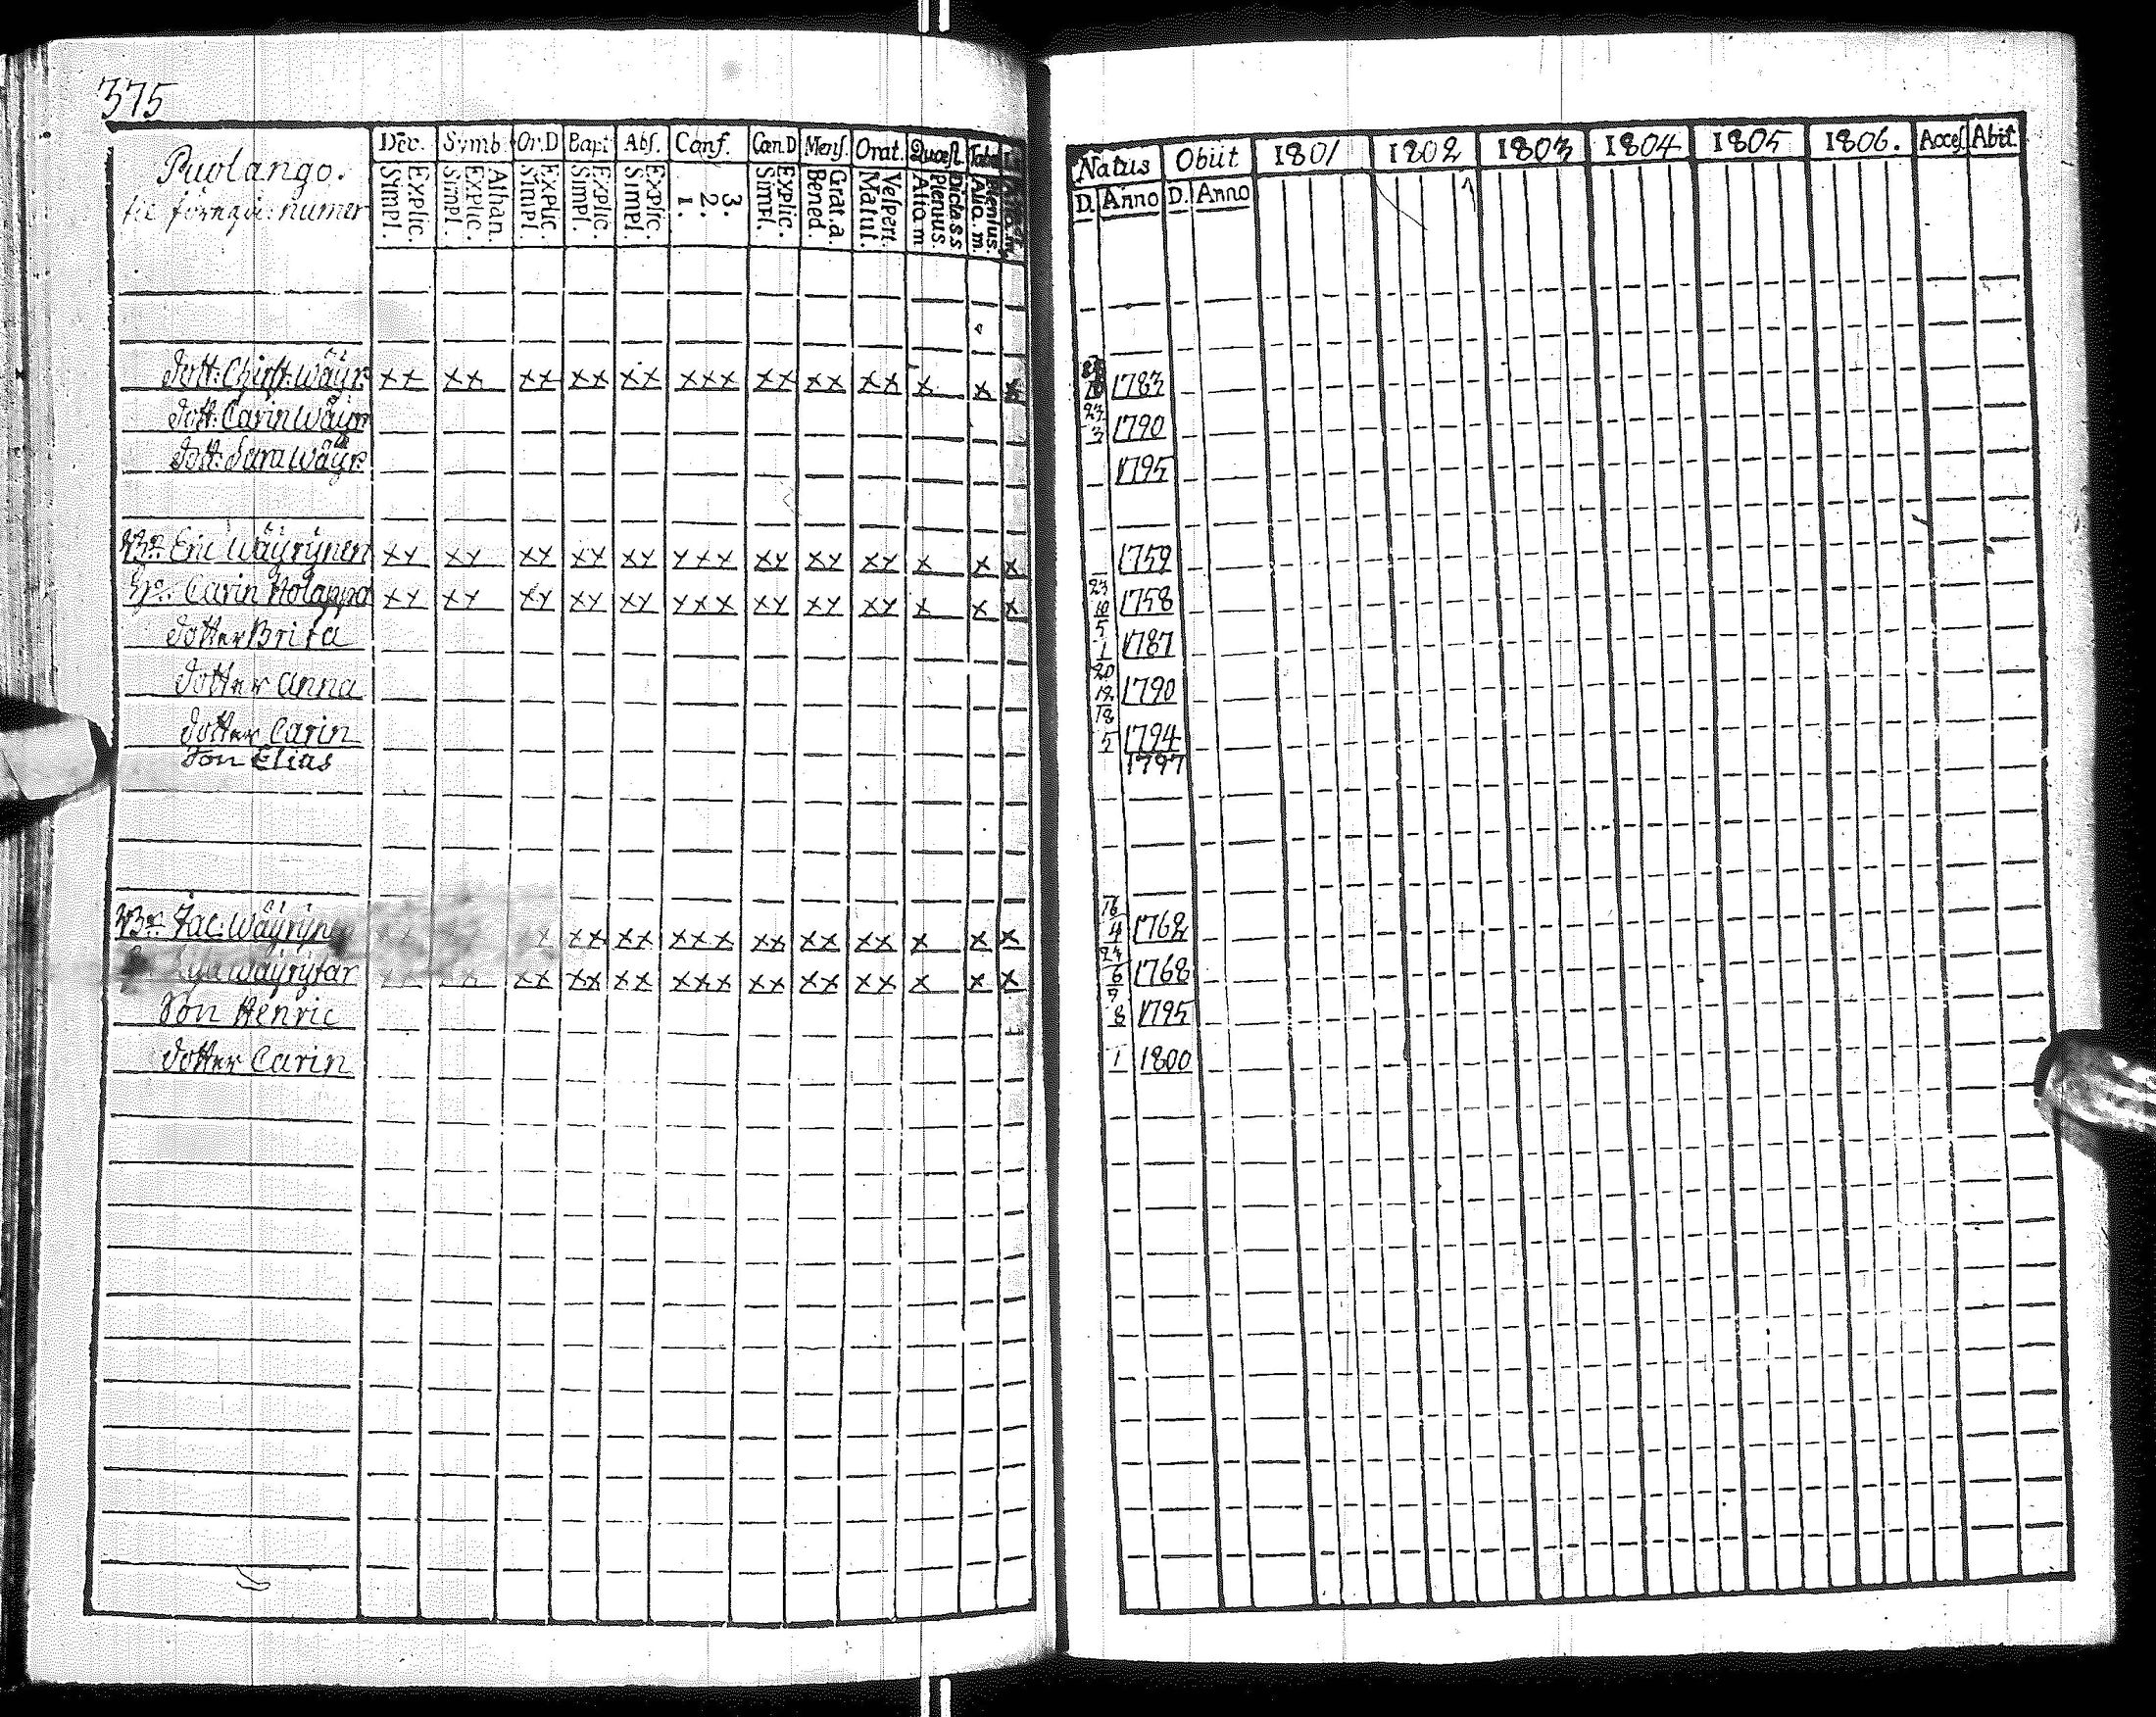 375
Puolango.
Dec. Symb. Or.D Bapt Abſ. Conf. Can.D Menſ. Orat. Quæſt. Tabel
Explic. Simpl. Athan. Explic. Simpl. Explic. Simpl. Explic. Simpl. Explic. Simpl. 3. 2. 1. Explic. Simpl. Grat.a. Bened. Veſpert. Matut. Dicta.s.s. Plenius. Alio.m. Plenius. Alio.m.
Natus Obiit 1801 1802 1803 1804 1805 1806. Acceſ. Abit.
D. Anno D. Anno
Dott: Chirſt: Wäyr: xx xx xx xx xx xxx xx xx xx x x x 1783
Dott: Carin Wäyr 23 3 1790
Dott: Sara Wäyr: 1795
Eric Wäyrynen xx xx xx xx xx xxx xx xx xx x x x 1759
Carin Holappa xx xx xx xx xx xxx xx xx xx x x x 23 10 1758
Dotter Brita 5 1 1787
Dotter Anna 20 12 1790
Dotter Carin 18 5 1794
Son Elias 1797
Jac: Wäyryn xx xx xx xxx xx xx xx x x x 16 4 1762
Wäyrytar xx xx xx xx xx xxx xx xx xx x x x 24 6 1768
Son Henric 7 8 1795
Dotter Carin 1 1800